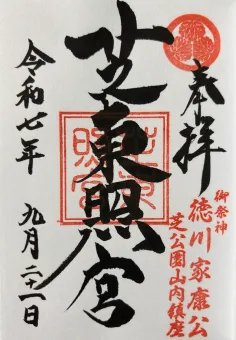 奉拝
御祭神
徳川家康公
芝公園山内鎮座
芝東照宮
令和七年
九月二十一日